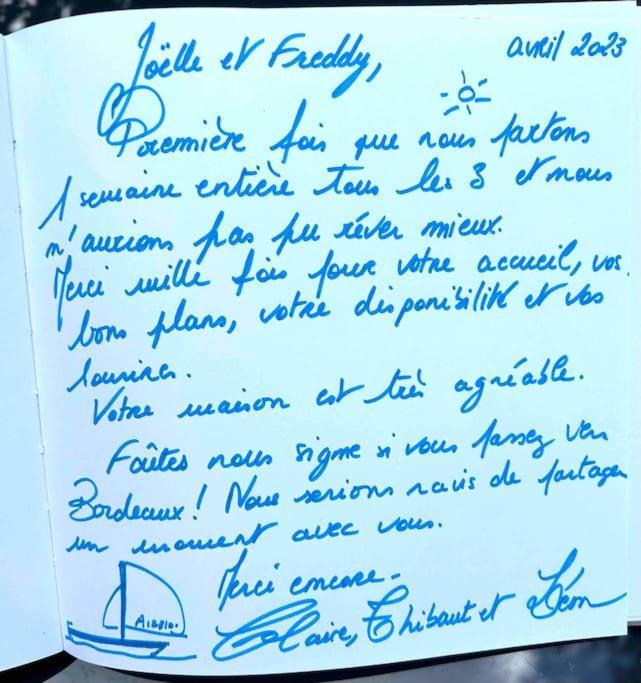 Joëlle et Freddy,
avril 2023
Première fois que nous partons
1 semaine entière tous les 3 et nous
n'aurions pas pu rêver mieux.
Merci mille fois pour votre accueil, vos
bons plans, votre disponibilité et vos
sourires.
Votre maison est très agréable.
Faîtes nous signe si vous passez vers
Bordeaux ! Nous serions ravis de partager
un moment avec vous.
Merci encore -
Claire, Thibaut et Léon